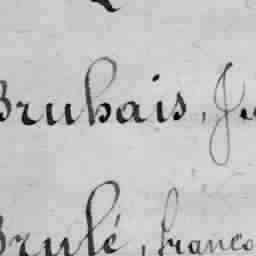 Bruhais, J
Brulé, Franço